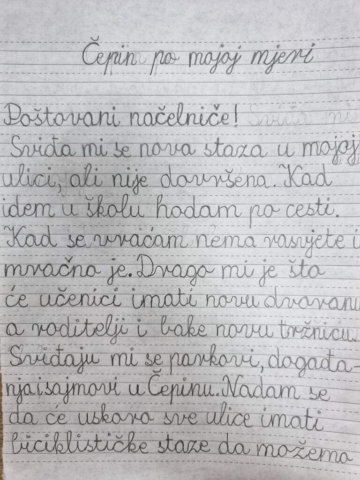 Čepin po mojoj mjeri
Poštovani načelniče!
Sviđa mi se nova staza u mojoj
ulici, ali nije dovršena. Kad
idem u školu hodam po cesti.
Kad se vraćam nema rasvjete i
mračno je. Drago mi je šta
će učenici imati novu dvoranu
a roditelji i bake novu tržnicu.
Sviđaju mi se parkovi, događa-
nja i sajmovi u Čepinu. Nadam se
da će uskoro sve ulice imati
biciklističke staze da možemo